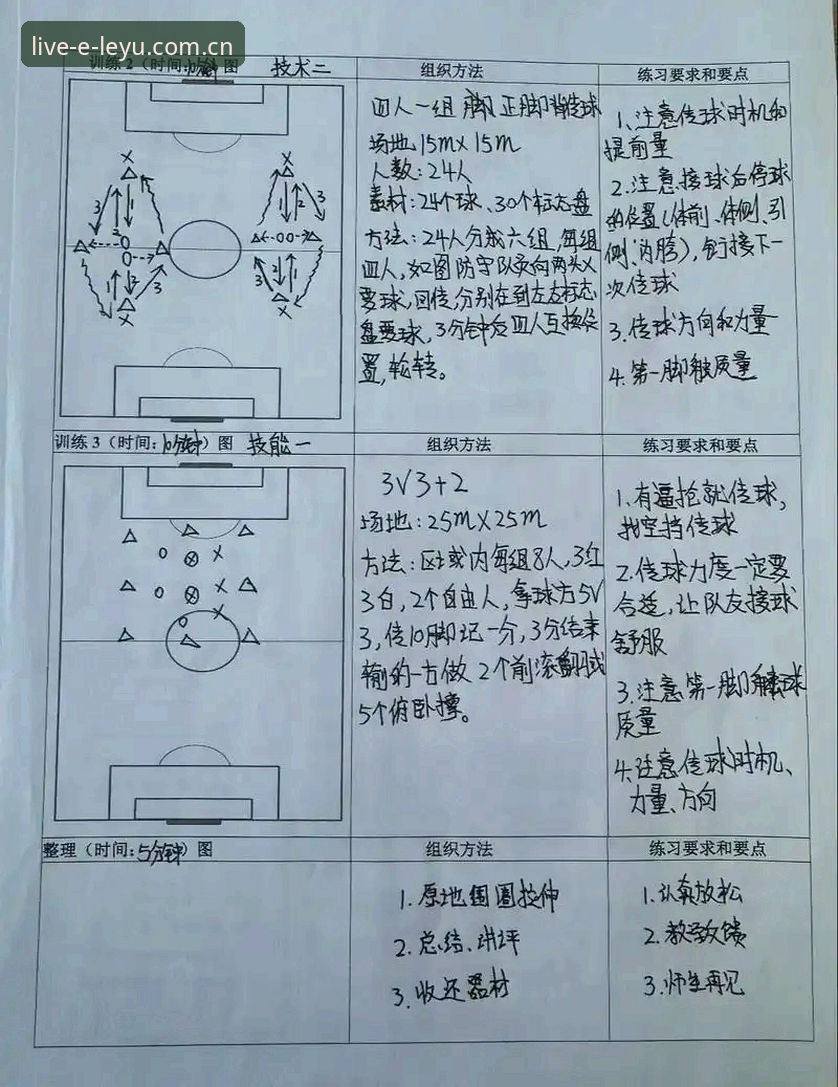 live-e-leyu.com.cn
训练2（时间:10分钟）图 技术二
组织方法
练习要求和要点
四人一组脚正脚背传球
场地15m×15m
人数:24人
素材:24个球、30个标志盘
方法:24人分成六组,每组
四人,如图防守队员向两头X
要球,回传,分别在到左右标志
盘要球,3分钟后四人互换位
置,轮转。
1、注意传球时机和
提前量
2.注意接球后停球
的位置(体前、体侧、引
侧、内胯),衔接下一
次传球
3.传球方向和力量
4.第一脚触质量
X
X
3
1
2
1
2
3
1
2
3
1
2
3
X
X
训练3（时间:10分钟）图 技能一
组织方法
练习要求和要点
3V3+2
场地:25m×25m
方法:区域内每组8人,3红
3白,2个自由人,拿球方5V
3,传10脚记一分,3分结束
输的一方做2个前滚翻或
5个俯卧撑。
1.有逼抢就传球,
找空挡传球
2.传球力度一定要
合适,让队友接球
舒服
3.注意第一脚触球
质量
4.注意传球时机、
力量、方向
整理（时间:5分钟）图
组织方法
练习要求和要点
1.原地围圈拉伸
2.总结、讲评
3.收还器材
1.认真放松
2.教学反馈
3.师生再见